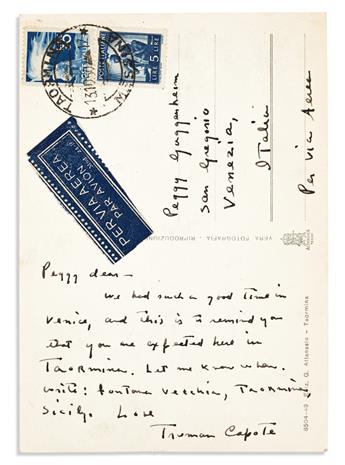 TAORMINA
MESSINA
13.10.50
POSTE ITALIANE
LIRE 5
LIRE 5
PER VIA AEREA
PAR AVION
Peggy Guggenheim
San Gregorio
Venezia,
Italia
Per Via Aerea
VERA FOTOGRAFIA - RIPRODUZIONE
8504-49 Ediz. G. Attanasio - Taormina
Peggy dear—
We had such a good time in
Venice, and this is to remind you
that you are expected here in
Taormina. Let me know when.
Write: Fontana Vecchia, Taormina,
Sicily. Love
Truman Capote